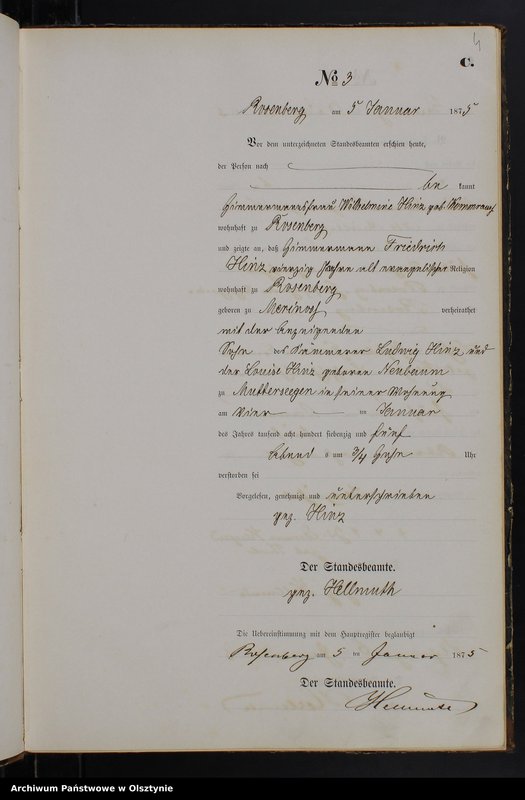 4
C.
No 3
Rosenberg am 5 Januar 1875
Vor dem unterzeichneten Standesbeamten erschien heute,
der Person nach
be kannt
Zimmermannsfrau Wilhelmine Hinz geb.
wohnhaft zu Rosenberg
und zeigte an, daß Zimmermann Friedrich
Hinz vierzig Jahre alt evangelischer Religion
wohnhaft zu Rosenberg
geboren zu verheirathet
mit der Anzeigenden
Sohn des Kämmerer Ludwig Hinz und
der Louise Hinz geborene Neubaum
zu in seiner Wohnung
am Vier ten Januar
des Jahres tausend acht hundert siebenzig und fünf
Abend s um 3/4 Zehn Uhr
verstorben sei
Vorgelesen, genehmigt und unterschrieben
gez. Hinz
Der Standesbeamte.
gez. Hellmuth
Die Uebereinstimmung mit dem Hauptregister beglaubigt
Rosenberg am 5 ten Januar 1875
Der Standesbeamte.
Hellmuth
Archiwum Państwowe w Olsztynie